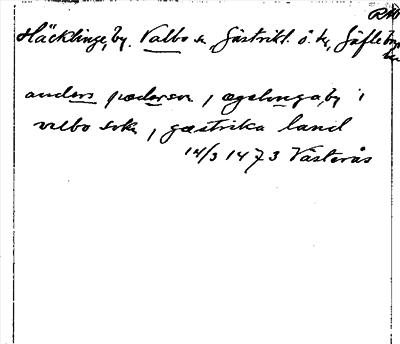 RAO
Häcklinge, by. Valbo sn, Gästrikl. ö. tg, Gäfleborgs
län
anders pæderson, ægelunga, by i
valbo sokn, gæstrika land
14/3 1473 Västerås